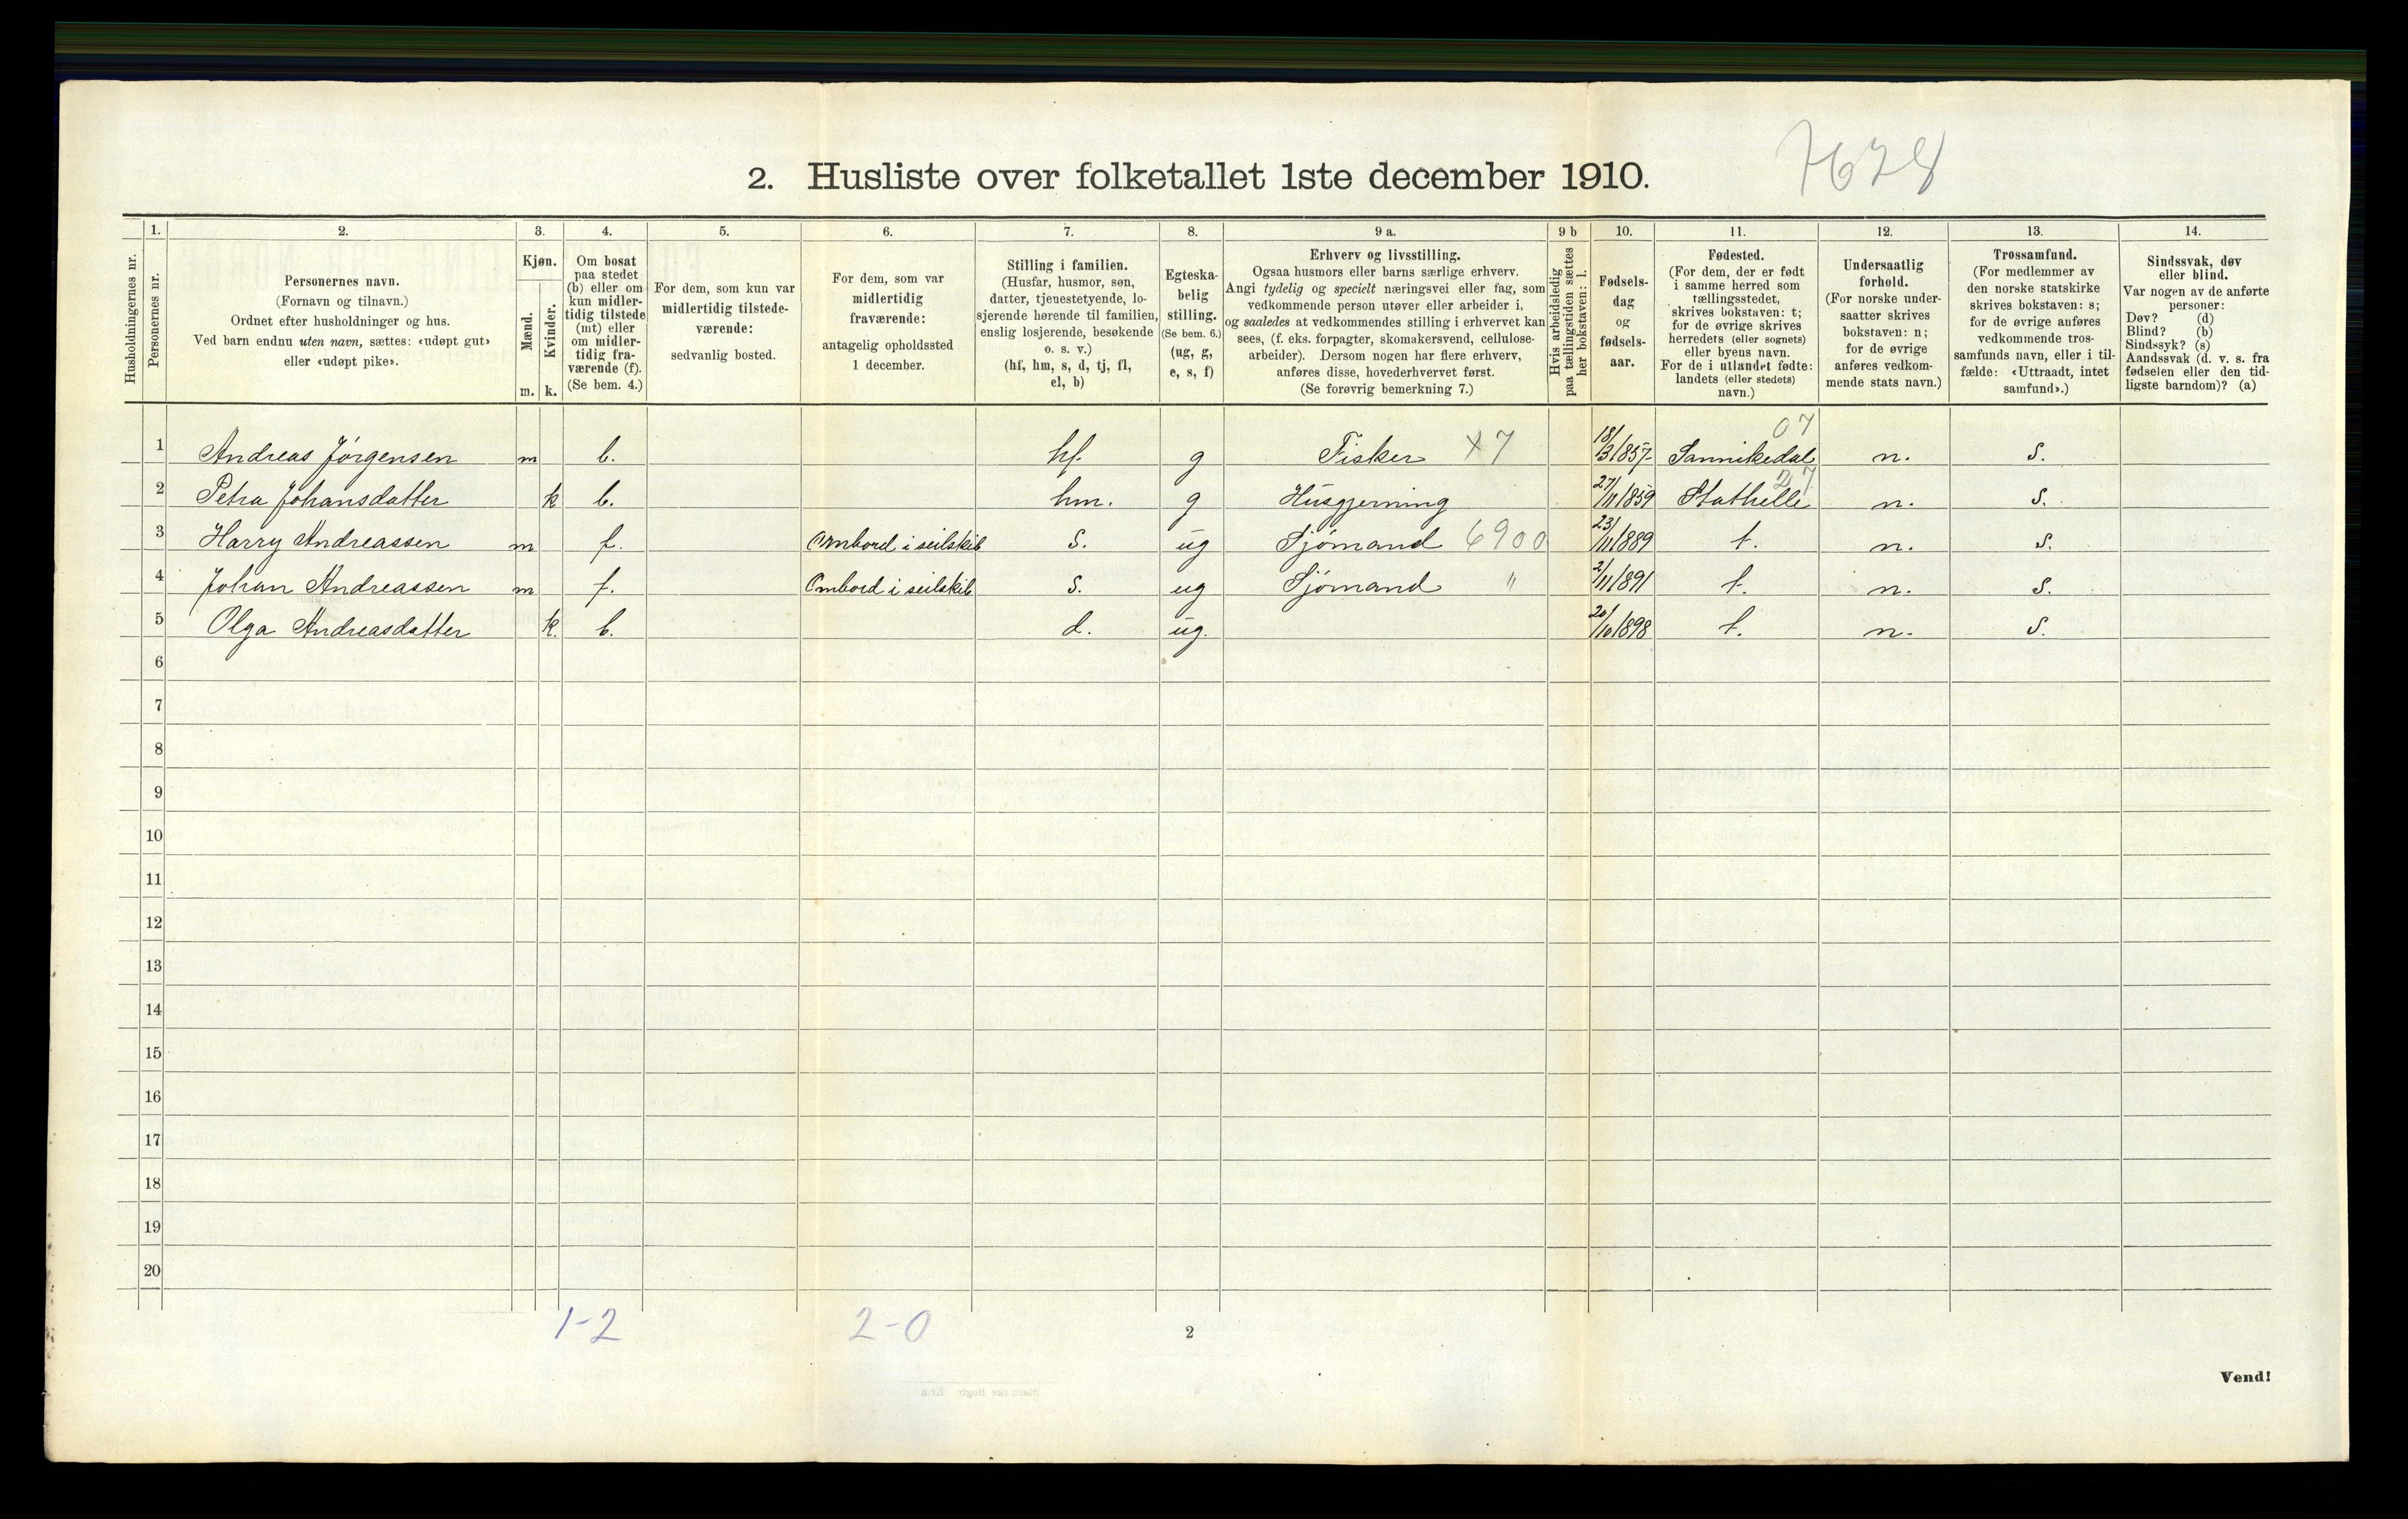 7628
2. Husliste over folketallet 1ste december 1910.
Husholdningernes nr.
1.
Personernes nr.
2.
Personernes navn.
(Fornavn og tilnavn.)
Ordnet efter husholdninger og hus.
Ved barn endnu uten navn, sættes: «udøpt gut»
eller «udøpt pike».
3.
Kjøn.
Mænd.
Kvinder.
m. k.
4.
Om bosat
paa stedet
(b) eller om
kun midler-
tidig tilstede
(mt) eller
om midler-
tidig fra-
værende (f).
(Se bem. 4.)
5.
For dem, som kun var
midlertidig tilstede-
værende:
sedvanlig bosted.
6.
For dem, som var
midlertidig
fraværende:
antagelig opholdssted
1 december.
7.
Stilling i familien.
(Husfar, husmor, søn,
datter, tjenestetyende, lo-
sjerende hørende til familien,
enslig losjerende, besøkende
o. s. v.)
(hf, hm, s, d, tj, fl,
el, b)
8.
Egteska-
belig
stilling.
(Se bem. 6.)
(ug, g,
e, s, f)
9 a.
Erhverv og livsstilling.
Ogsaa husmors eller barns særlige erhverv.
Angi tydelig og specielt næringsvei eller fag, som
vedkommende person utøver eller arbeider i,
og saaledes at vedkommendes stilling i erhvervet kan
sees, (f. eks. forpagter, skomakersvend, cellulose-
arbeider). Dersom nogen har flere erhverv,
anføres disse, hovederhvervet først.
(Se forøvrig bemerkning 7.)
9 b
Hvis arbeidsledig
paa tællingstiden sættes
her bokstaven: l.
10.
Fødsels-
dag
og
fødsels-
aar.
11.
Fødested.
(For dem, der er født
i samme herred som
tællingsstedet,
skrives bokstaven: t;
for de øvrige skrives
herredets (eller sognets)
eller byens navn.
For de i utlandet fødte:
landets (eller stedets)
navn.)
12.
Undersaatlig
forhold.
(For norske under-
saatter skrives
bokstaven: n;
for de øvrige
anføres vedkom-
mende stats navn.)
13.
Trossamfund.
(For medlemmer av
den norske statskirke
skrives bokstaven: s;
for de øvrige anføres
vedkommende tros-
samfunds navn, eller i til-
fælde: «Uttraadt, intet
samfund».)
14.
Sindssvak, døv
eller blind.
Var nogen av de anførte
personer:
Døv? (d)
Blind? (b)
Sindssyk? (s)
Aandssvak (d. v. s. fra
fødselen eller den tid-
ligste barndom)? (a)
07
1 Andreas Jørgensen m b. hf. g Fisker X7 18/3 1857 Sannikedal n. s.
27
2 Petra Johansdatter k b. hm. g Husgjerning 27/11 1859 Stathelle n. s.
3 Harry Andreassen m f. Ombord i seilskib s. ug Sjømand 6900 23/11 1889 t. n. s.
4 Johan Andreassen m f. Ombord i seilskib s. ug Sjømand " 2/11 1891 t. n. s.
5 Olga Andreasdatter k. b. d. ug. 20/10 1898 t. n. s.
6
7
8
9
10
11
12
13
14
15
16
17
18
19
20
1-2 2-0
2
Vend!